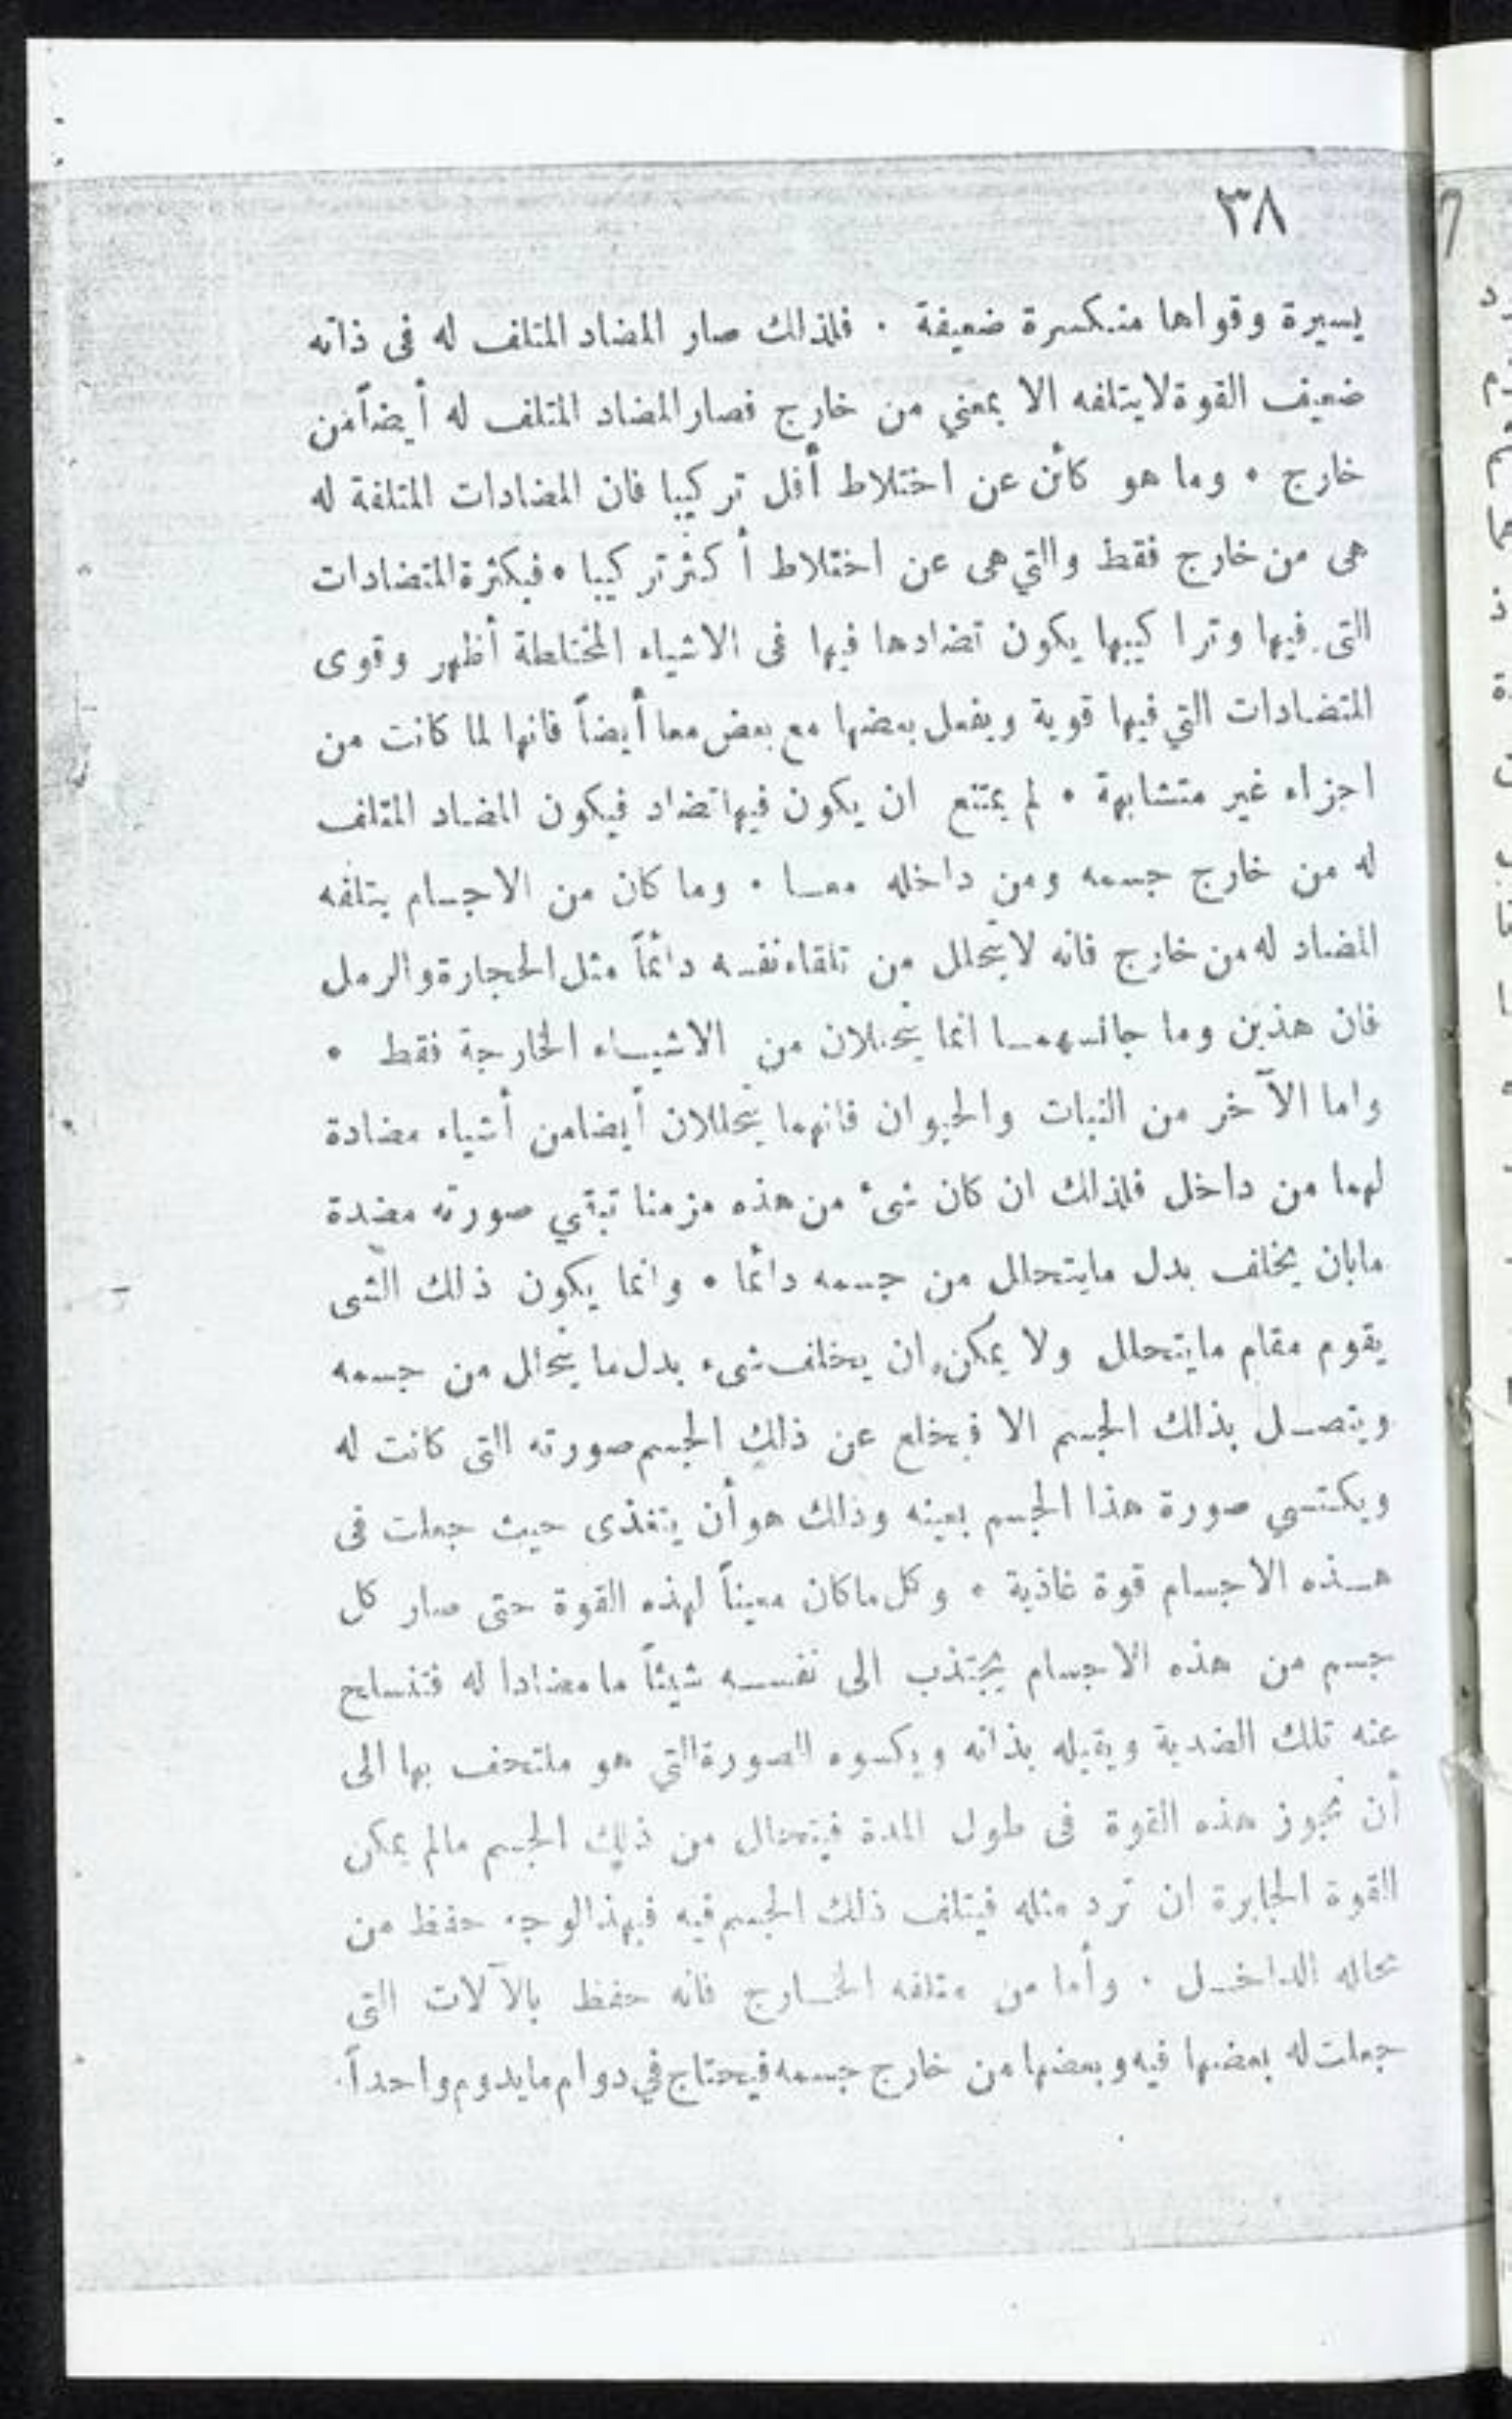 ٣٨
يسيرة وقواها منكسرة ضعيفة . فلذلك صار المضاد المتلف له فى ذاته
ضعيف القوة لا يتلفه الا بمعني من خارج فصار المضاد المتلف له أيضاً من
خارج ٠ وما هو كائن عن اختلاط أقل تركيبا فان المضادات المتلفة له
هى من خارج فقط والتي هى عن اختلاط أكثر تركيبا ٠ فبكثرة المتضادات
التى فيها وتراكيبها يكون تضادها فيها فى الاشياء المختلطة أظهر وقوى
المتضادات التي فيها قوية ويفعل بعضها مع بعض معا أيضاً فانها لما كانت من
اجزاء غير متشابهة ٠ لم يمتنع ان يكون فيها تضاد فيكون المضاد المتلف
له من خارج جسمه ومن داخله معا . وما كان من الاجسام يتلفه
المضاد له من خارج فانه لا يتحلل من تلقاء نفسه دائماً مثل الحجارة والرمل
فان هذين وما جانسهما انما يتحللان من الاشياء الخارجة فقط ٠
واما الآخر من النبات والحيوان فانهما يتحللان أيضا من أشياء مضادة
لهما من داخل فلذلك ان كان شىء من هذه مزمنا تبقي صورته مضدة
مابان يخلف بدل مايتحلل من جسمه دائما ٠ وانما يكون ذلك الشى
يقوم مقام مايتحلل ولا يمكن ان يخلف شىء بدل ما يتحلل من جسمه
ويتصل بذلك الجسم الا فيخلع عن ذلك الجسم صورته التى كانت له
ويكتسي صورة هذا الجسم بعينه وذلك هو أن يتغذى حيث جعلت فى
هذه الاجسام قوة غاذية ٠ وكل ماكان معيناً لهذه القوة حتى صار كل
جسم من هذه الاجسام يجتذب الى نفسه شيئاً ما مضادا له فتنسلخ
عنه تلك الضدية ويقبله بذاته ويكسوه الصورة التي هو ملتحف بها الى
أن تجوز هذه القوة فى طول المدة فيتحلل من ذلك الجسم مالم يمكن
القوة الجابرة ان ترد مثله فيتلف ذلك الجسم فيه فبهذا الوجه حفظ من
محلله الداخل . وأما من متلفه الخارج فانه حفظ بالآلات التى
جعلت له بعضها فيه وبعضها من خارج جسمه فيحتاج في دوام مايدوم واحداً.